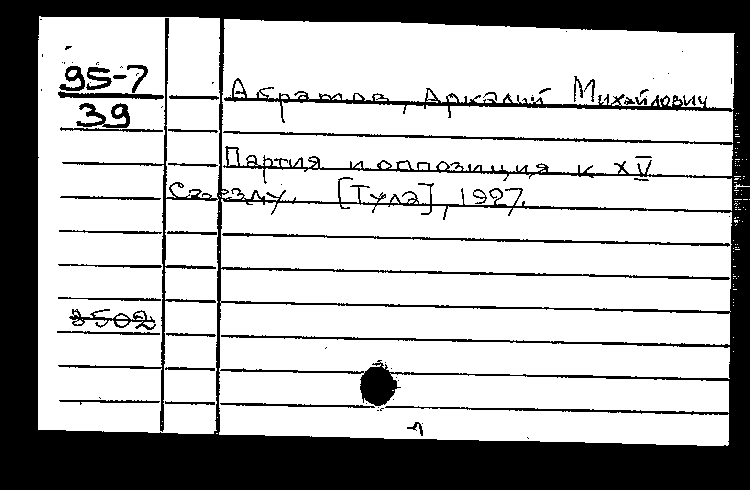 95-7
39
Абратов, Аркадий Михайлович
Партия и оппозиция к XV
Съезду. [Тула], 1927.
3502